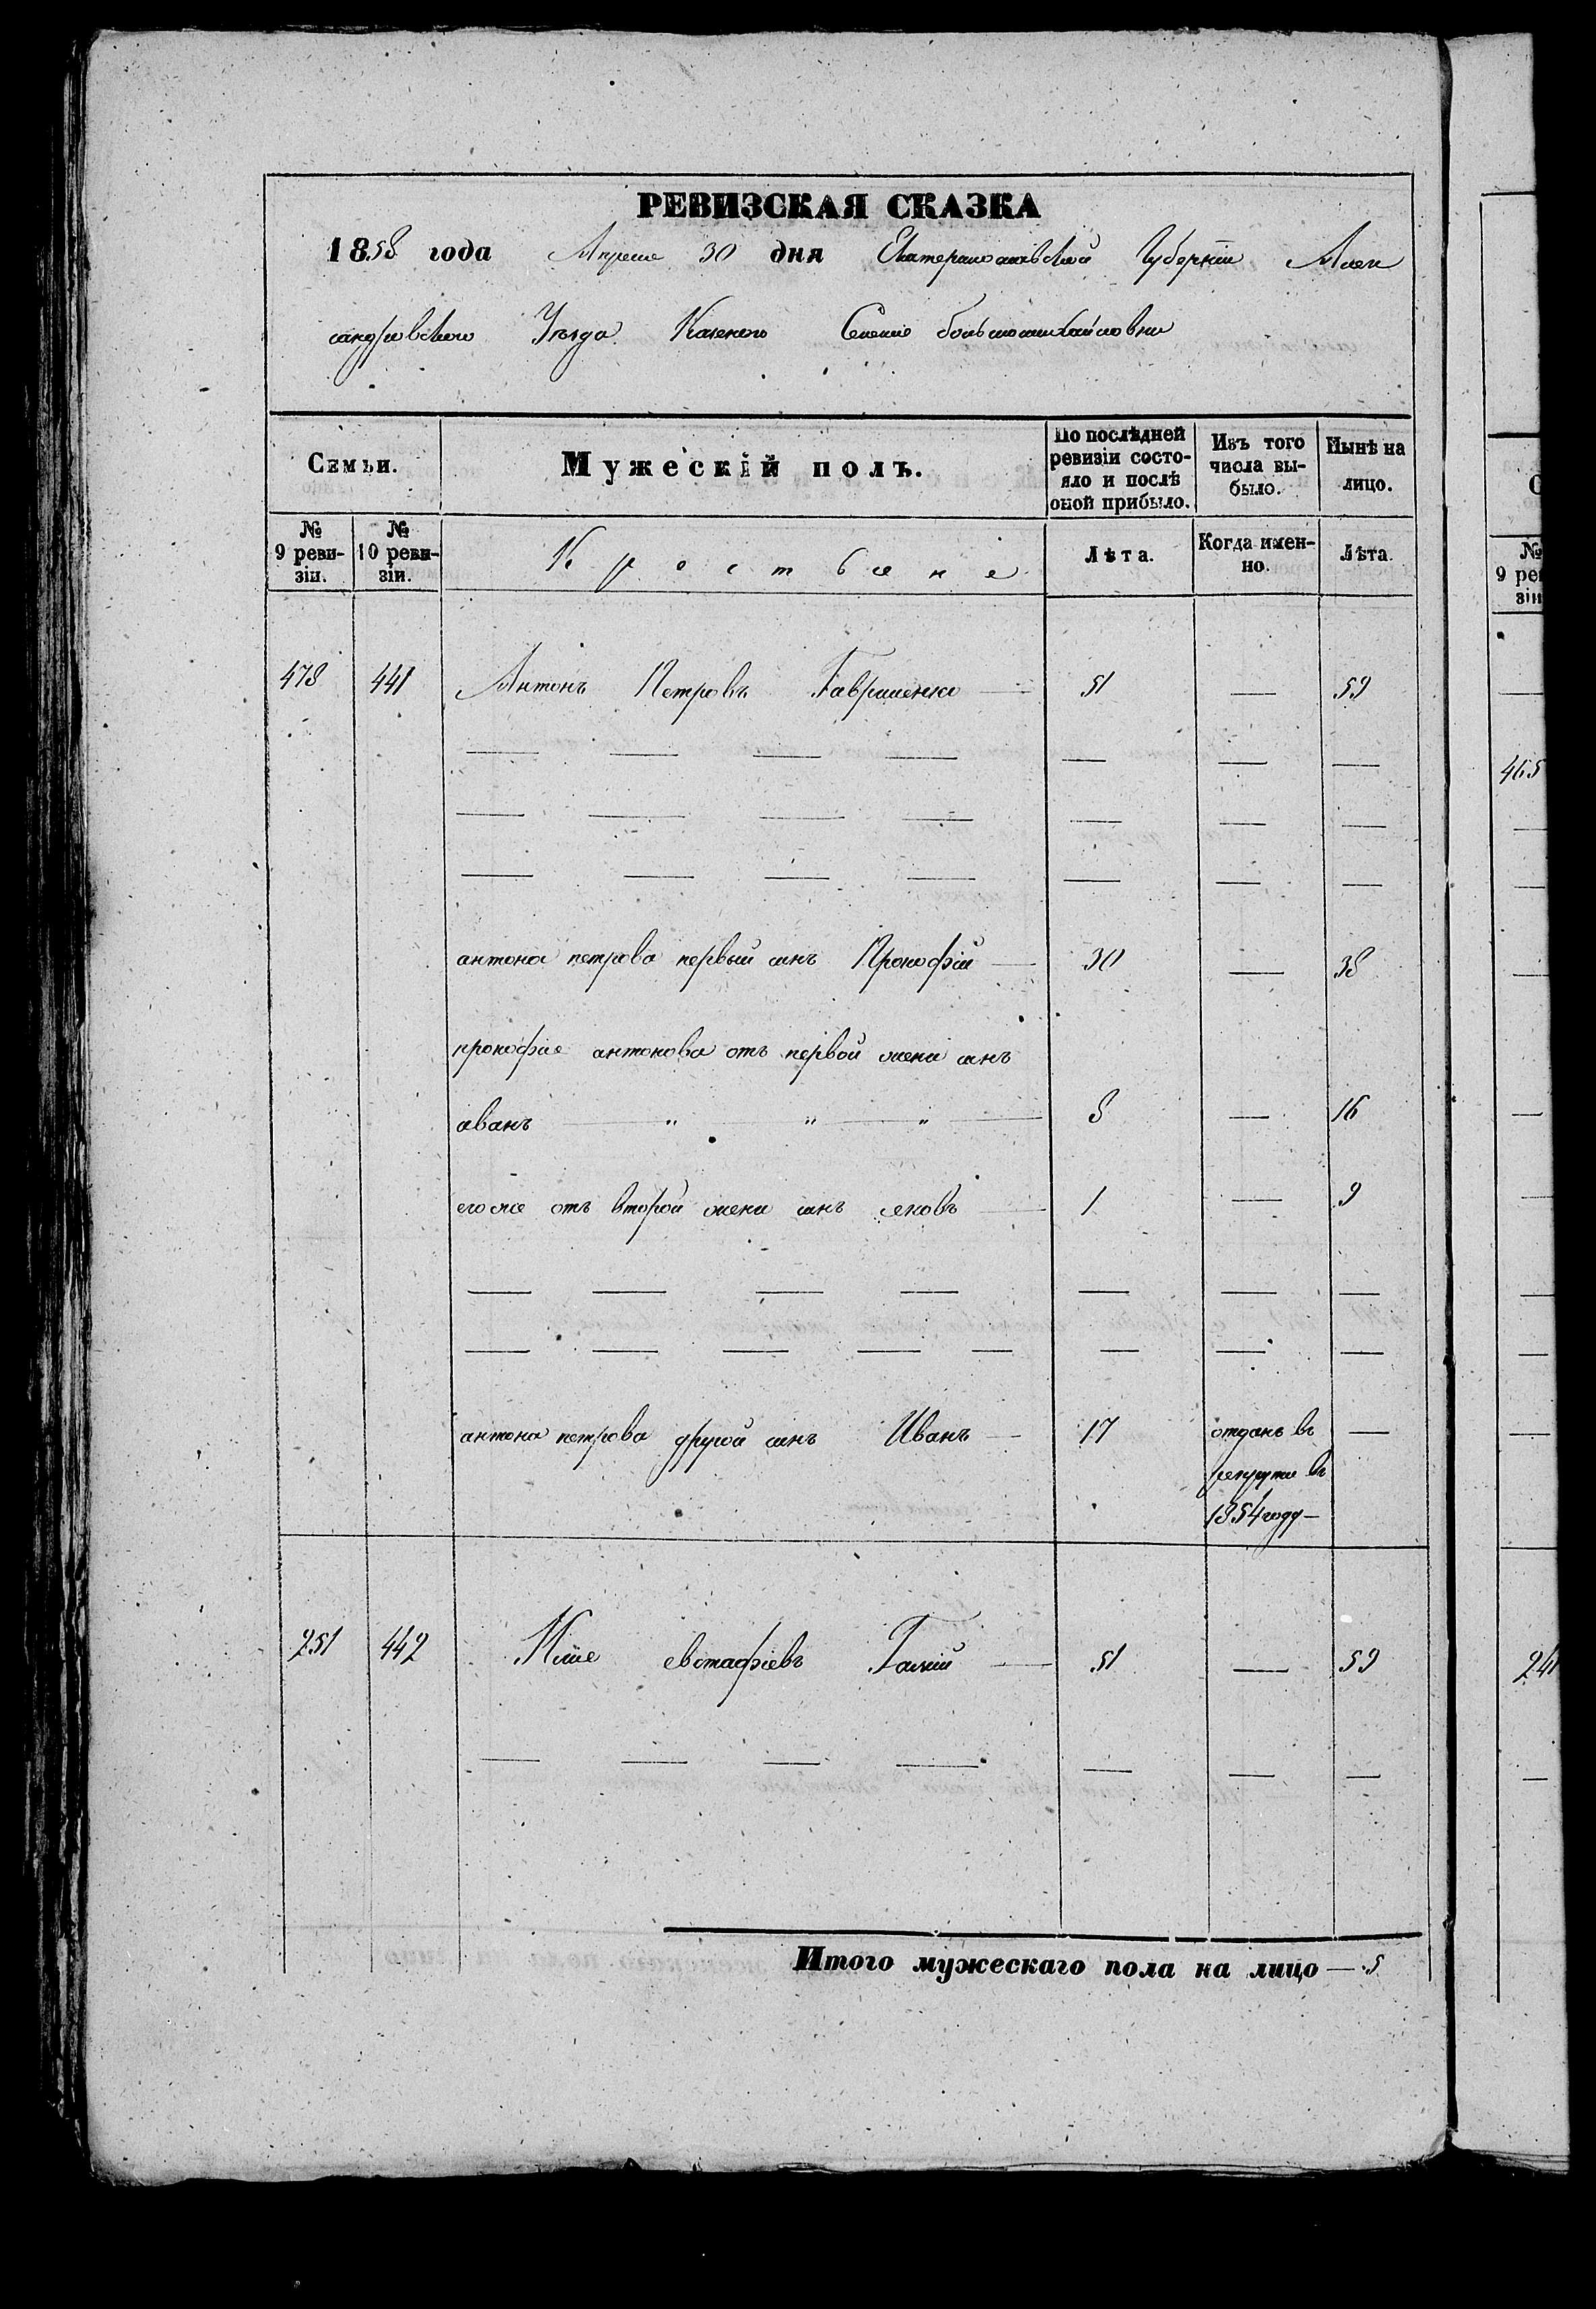 РЕВИЗСКАЯ СКАЗКА
1858 года Апреля 30 дня Екатеринославской Губерніи Алек
сандровского Уезда Казеного Селенія большомихайловки
Семьи.
Мужескій полъ.
По послѣдней ревизіи состояло и послѣ оной прибыло.
Изъ того числа выбыло.
Нынѣ на лицо.
№ 9 ревизіи.
№ 10 ревизіи.
Крестьяне
Лѣта.
Когда именно.
Лѣта.
478 441 Антонъ Петровъ Гавриленко — 51 — 59
антона петрова первый синъ Прокофій — 30 — 38
прокофія антонова отъ первой жени синъ
иванъ — " — " — " — 8 — 16
егоже отъ второй жени синъ яковъ — 1 — 9
антона петрова другой синъ Иванъ — 17 отданъ въ —
рекрути въ
1854 году —
251 442 Илія евстафіевъ — 51 — 59
Итого мужескаго пола на лицо — 5
№
9 ре
зіи
465
241